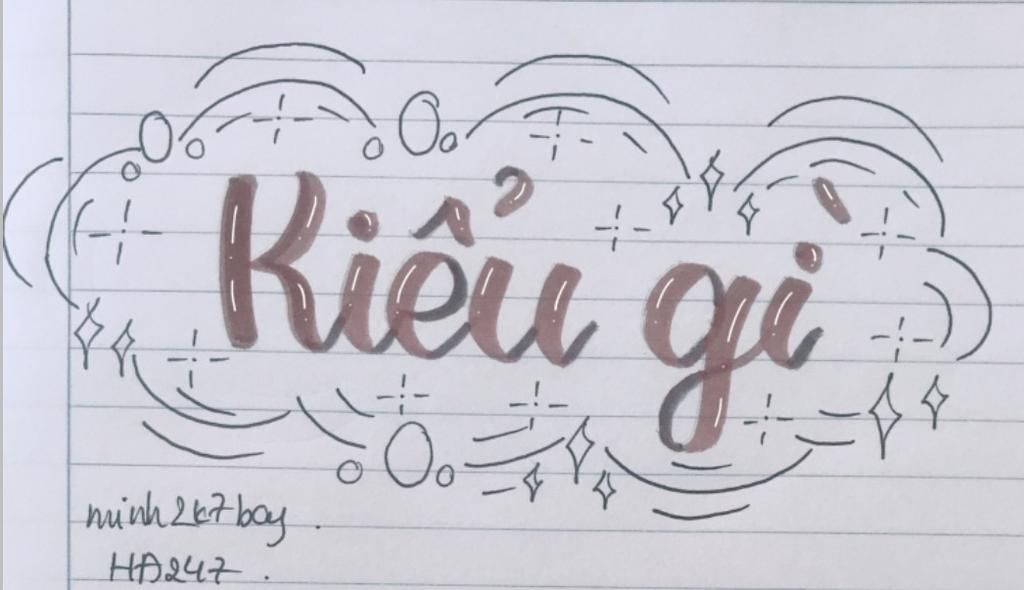 Kiểu gì
minh2k7boy.
HĐ247.